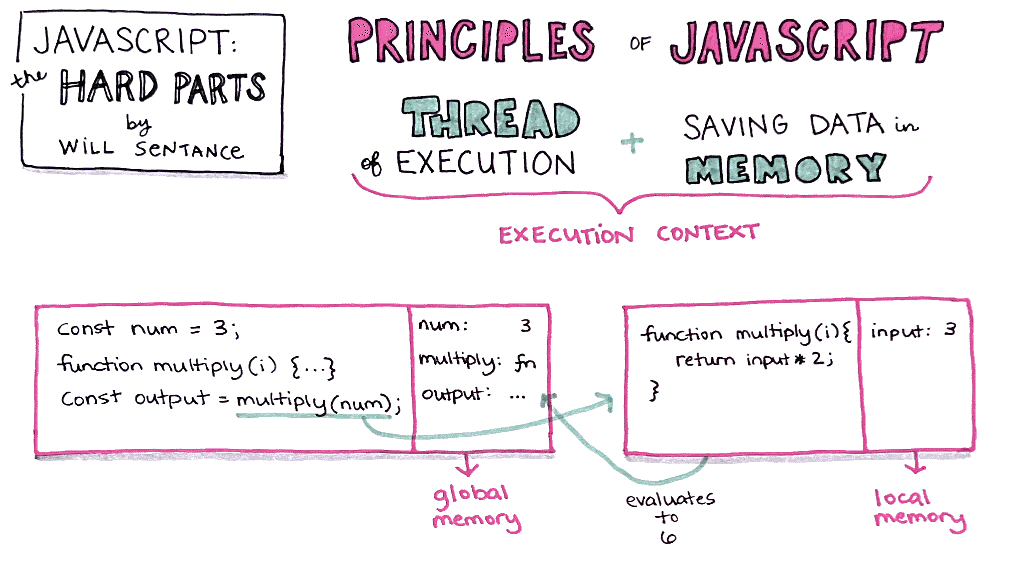 JAVASCRIPT:
the HARD PARTS
by
WILL SENTANCE
PRINCIPLES OF JAVASCRIPT
THREAD
of EXECUTION
+
SAVING DATA in
MEMORY
EXECUTION CONTEXT
const num = 3;
function multiply(i) {...}
const output = multiply(num);
num: 3
multiply: fn
output: ...
global
memory
function multiply(i){
return input * 2;
}
input: 3
evaluates
to
6
local
memory